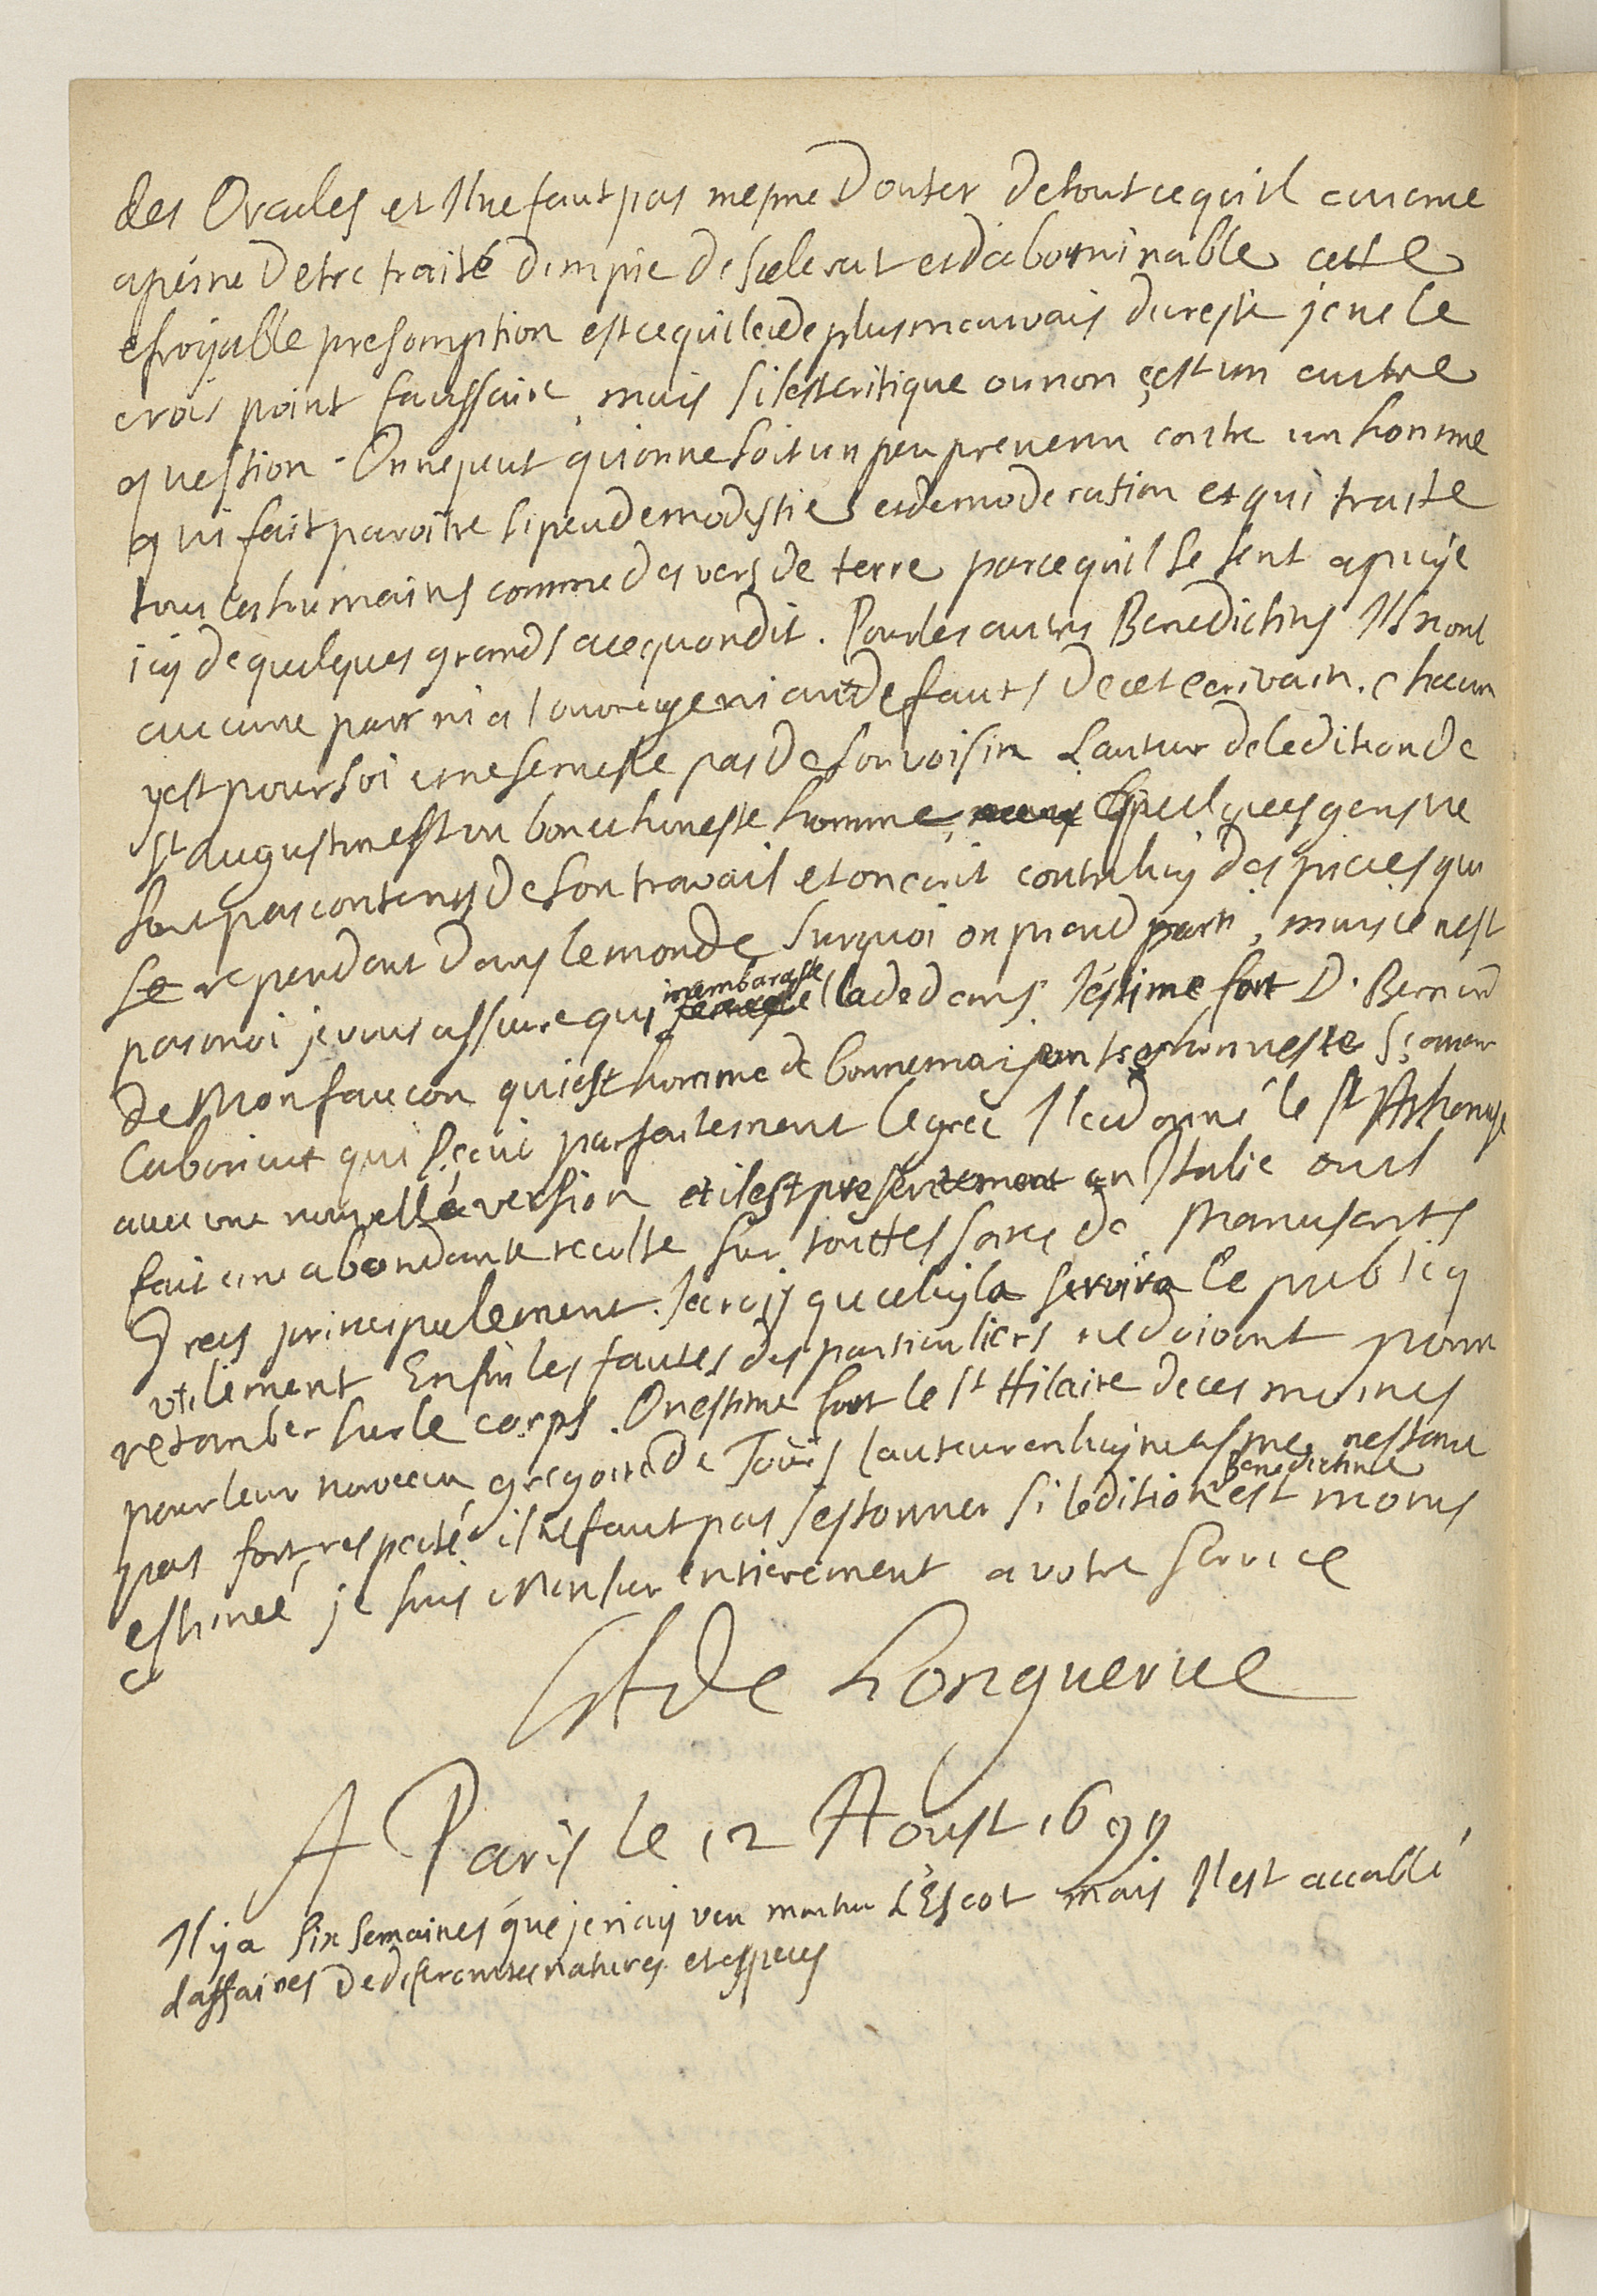 des Oracles et Il ne faut pas mesme Douter de tout ce quil avance
a peine Detre traité dimpie de scelerat et dabominable cette
efroyable presomption est ce quil a de plus mauvais du reste je ne le
crois point faussaire, mais sil est critique ou non c'est un autre
question. On ne peut qu'on ne soit un peu prevenu contre un homme
qui fait paroitre si peu de modestie et de moderation et qui traite
tous les humains comme des vers de terre parcequil se sent apuye
icy de quelques grands a ce quon dit. Pour les autres Benedictins Ils n'ont
aucune part ni a l'ouvrage ni aux defauts De cet ecrivain. chacun
y est pour soi et ne se mesle pas De son voisin L'auteur de ledition de
St Augustin est un bon et honeste homme, Quelques gens ne
sont pas contens De son travail et on ecrit contre luy des pieces qui
se rependent Dans le monde surquoi on prend parti, mais ce n'est
pas moi je vous assure qui m'embarasse la dedans. J'estime fort D. Bernard
de Monfaucon qui est homme de bonne maison tres honneste sçavant
laborieux qui sçait parfaitement le grec Il a donné le St Athanase
avec une nouvelle version et il est presentement en Italie ou il
fait une abondante recolte sur touttes sortes de Manuscrits
Grecs principalement. Je crois que celuy la servira le publicq
vtilement Enfin les fautes des particuliers ne doivent point
retomber sur le corps. On estime fort le St Hilaire de ces moines
pour leur nouveau gregoire de Tours l'auteur en luy mesme nestant
pas fort respecté il ne faut pas s'estonner si lédition Benedictine est moins
estimeé je suis Monsieur entierement a votre service
de Longuerue
A Paris le 12 Aoust 1699
Il y a six semaines que je n'ay veu L'Escot mais Il est accablé
daffaires De diferentes natures et especes